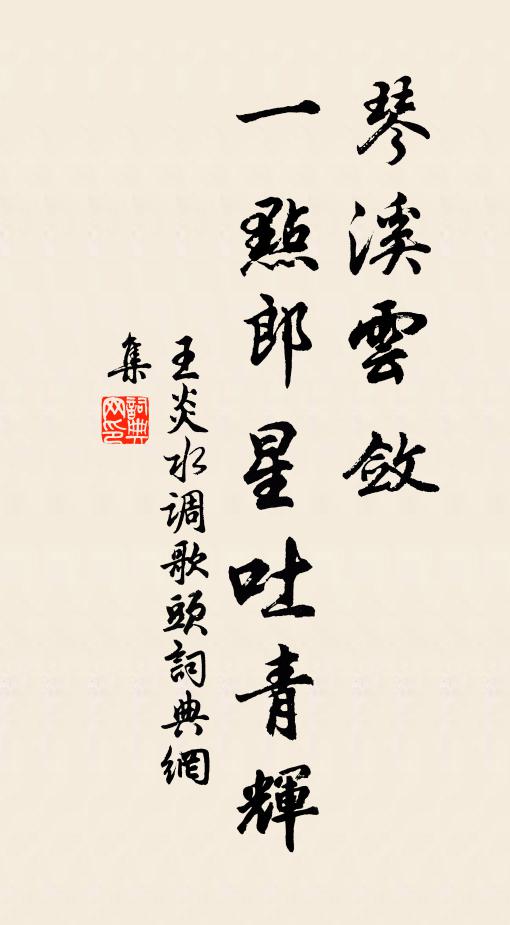 琴溪雲斂
一點郎星吐青輝
王炎水调歌頭詞典網
集
詞典
网印